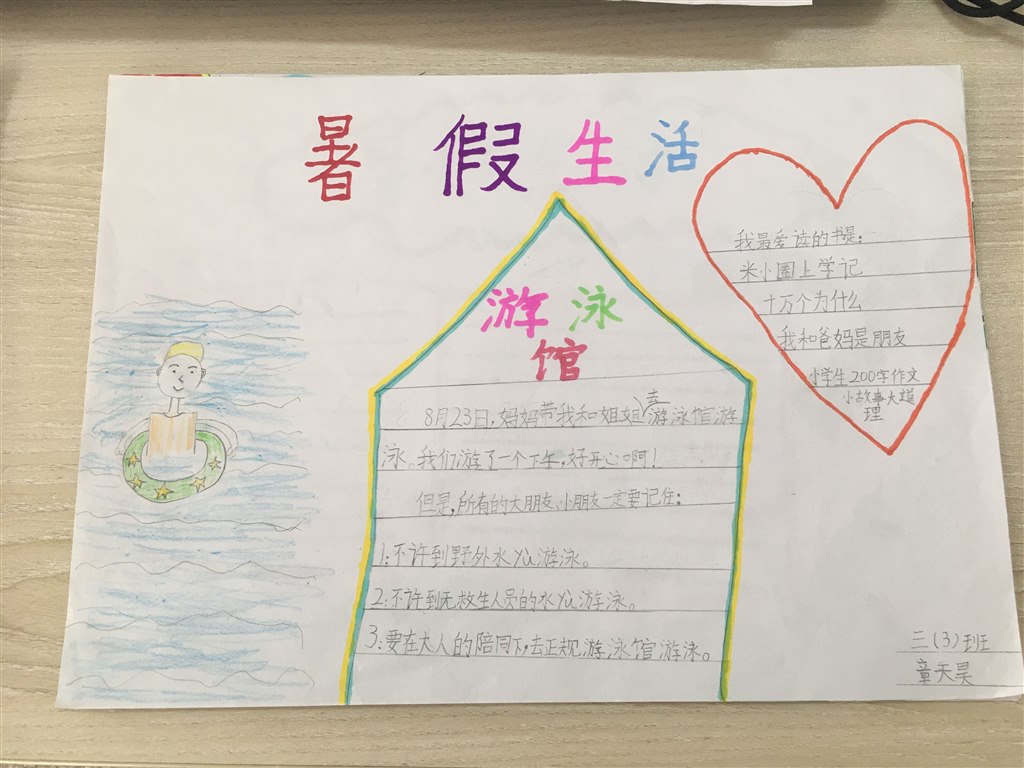 暑假生活
游泳
馆
8月23日,妈妈带我和姐姐去游泳馆游
泳。我们游了一个下午,好开心啊!
但是,所有的大朋友、小朋友一定要记住:
1:不许到野外水yù游泳。
2:不许到无救生人员的水yù游泳。
3:要在大人的陪同下,去正规游泳馆游泳。
我最爱读的书是:
米小圈上学记
十万个为什么
我和爸妈是朋友
小学生200字作文
小故事大道
理
三(3)班
章天昊